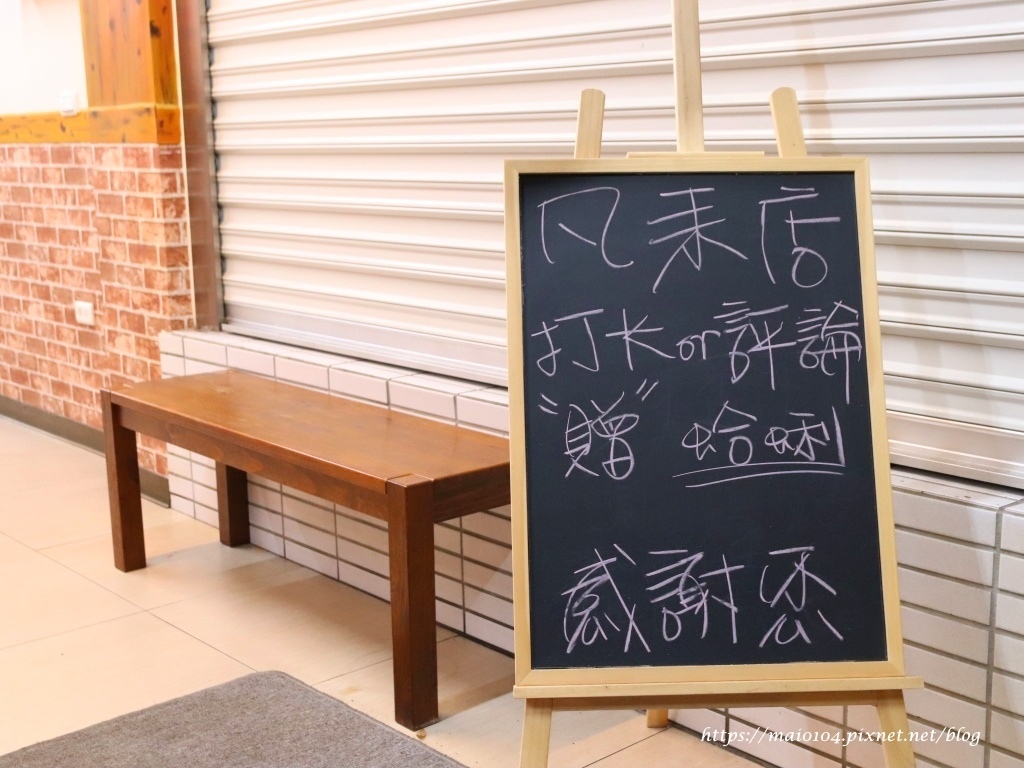 凡来店
打卡or評論
"贈" 哈唎
感謝您
https://maio104.pixnet.net/blog